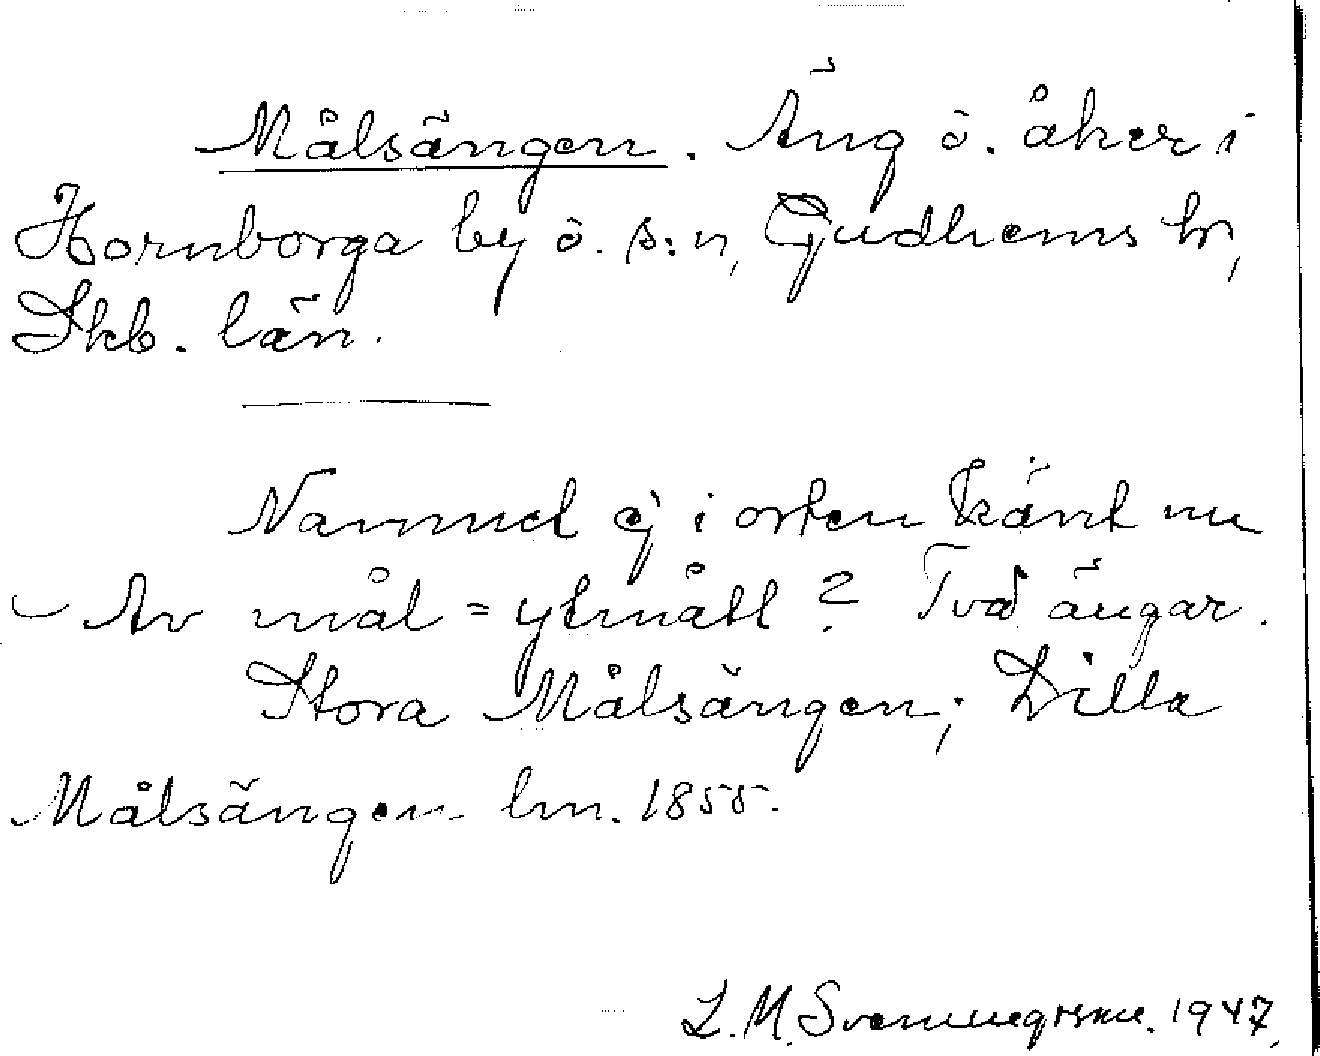 Målsängen. Äng ö. åker i
Hornborga by ö. s:n, Gudhems hr,
Skb. län.
Namnet ej i orten känt nu
Av mål = ytmått? Två ängar.
Stora Målsängen; Lilla
Målsängen lm. 1855.
L. M. Svenungsson. 1947.